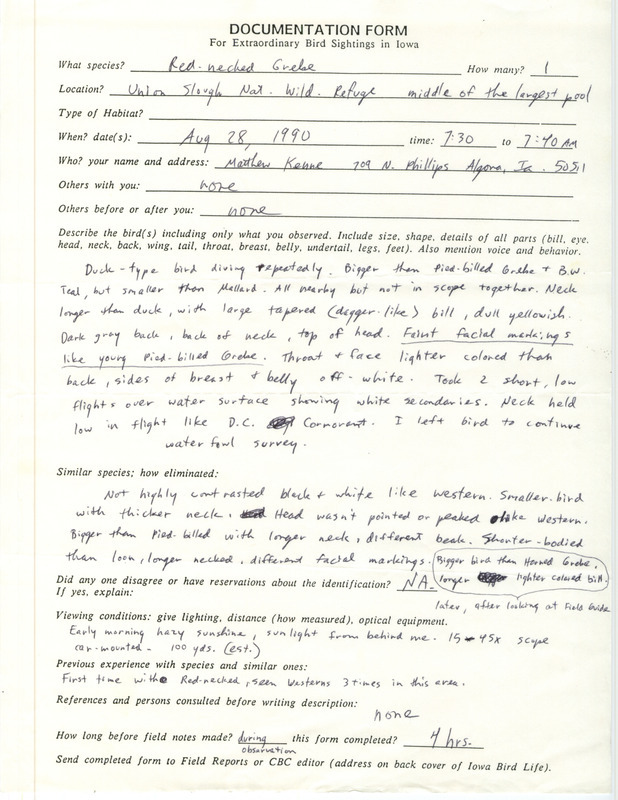 DOCUMENTATION FORM
For Extraordinary Bird Sightings in Iowa
What species? Red-necked Grebe How many? 1
Location? Union Slough Nat. Wild. Refuge middle of the largest pool
Type of Habitat?
When? date(s): Aug 28, 1990 time: 7:30 to 7:40 AM
Who? your name and address: Matthew Kenne 709 N. Phillips Algona, Ia. 50511
Others with you: none
Others before or after you: none
Describe the bird(s) including only what you observed. Include size, shape, details of all parts (bill, eye,
head, neck, back, wing, tail, throat, breast, belly, undertail, legs, feet). Also mention voice and behavior.
Duck-type bird diving repeatedly. Bigger than Pied-billed Grebe + B.W.
Teal, but smaller than Mallard. All nearby but not in scope together. Neck
longer than duck, with large tapered (dagger-like) bill, dull yellowish.
Dark gray back, back of neck, top of head. Faint facial markings
like young Pied-billed Grebe. Throat + face lighter colored than
back, sides of breast + belly off-white. Took 2 short, low
flights over water surface showing white secondaries. Neck held
low in flight like D.C. Cormorant. I left bird to continue
water fowl survey.
Similar species; how eliminated:
Not highly contrasted black + white like western. Smaller bird
with thicker neck. Head wasn't pointed or peaked like western.
Bigger than Pied-billed with longer neck, different beak. Shorter-bodied
than loon, longer necked, different facial markings. Bigger bird than Horned Grebe,
longer lighter colored bill.
Did any one disagree or have reservations about the identification? NA
If yes, explain:
later, after looking at Field Guide
Viewing conditions: give lighting, distance (how measured), optical equipment.
Early morning hazy sunshine, sunlight from behind me. 15-45x scope
car-mounted - 100 yds. (est.)
Previous experience with species and similar ones:
First time with Red-necked, seen westerns 3 times in this area.
References and persons consulted before writing description:
none
How long before field notes made? during observation this form completed? 4 hrs.
Send completed form to Field Reports or CBC editor (address on back cover of Iowa Bird Life).